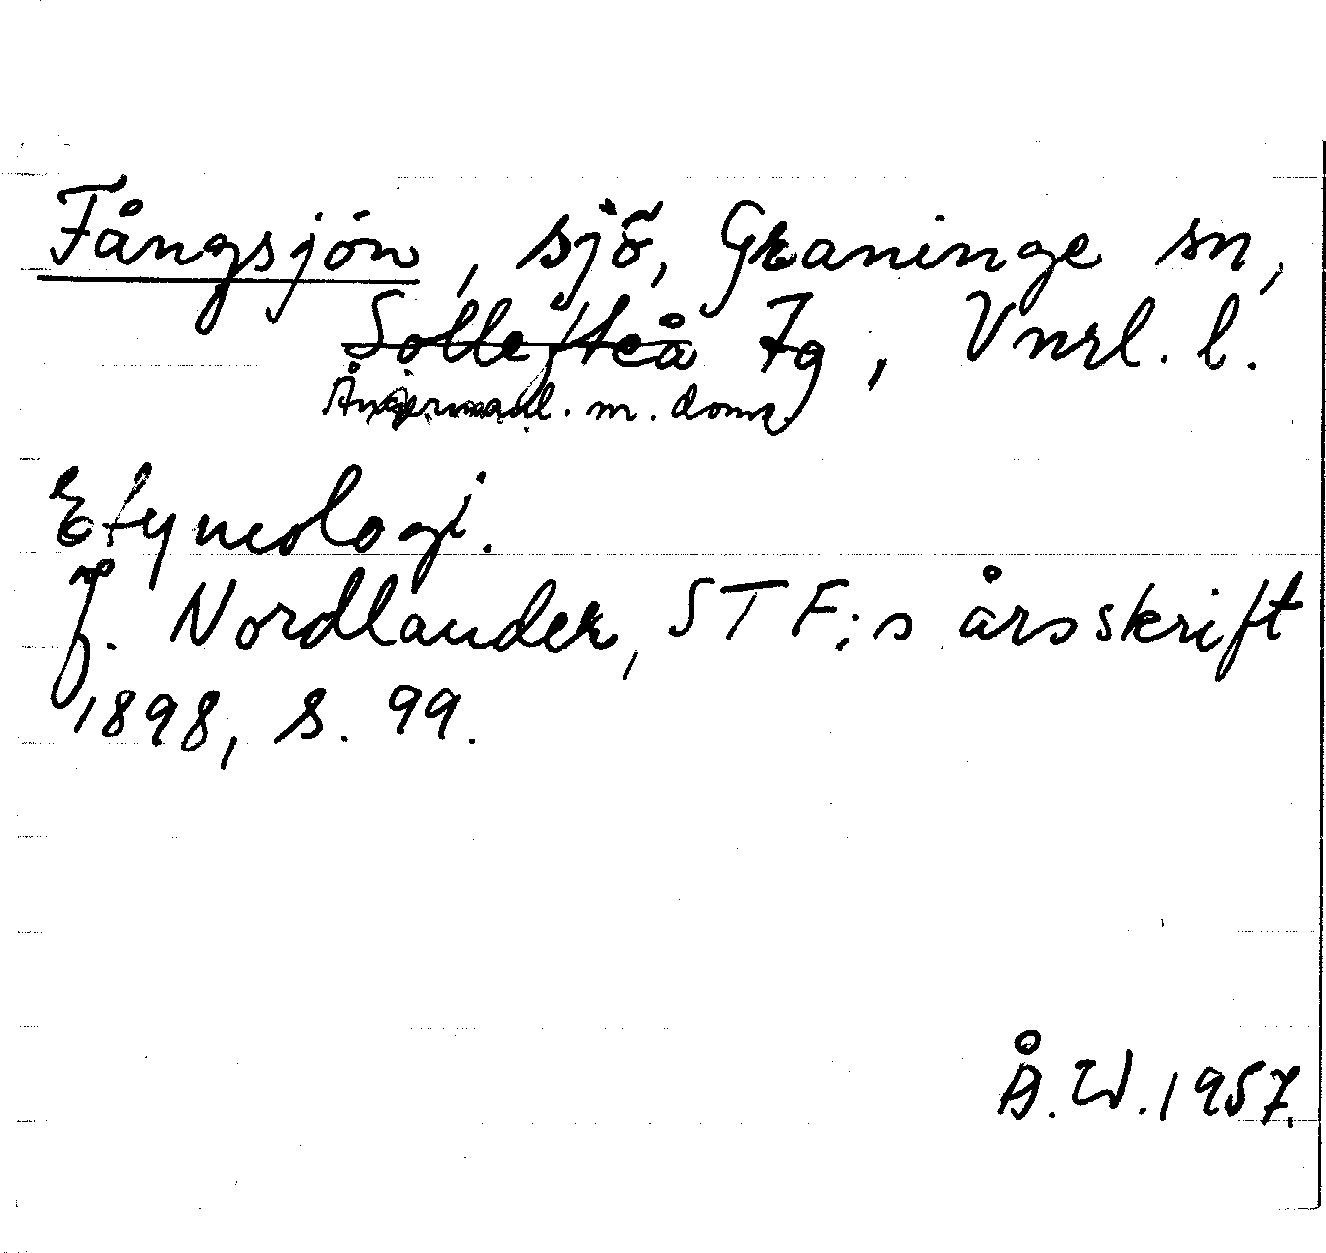 Fångsjön, sjö, Graninge sn,
Sollefteå Tg, Vnrl. l.
Ångermanl. m. doms.
Etymologi.
J. Nordlander, STF:s årsskrift
1898, s. 99.
Å.W. 1957.